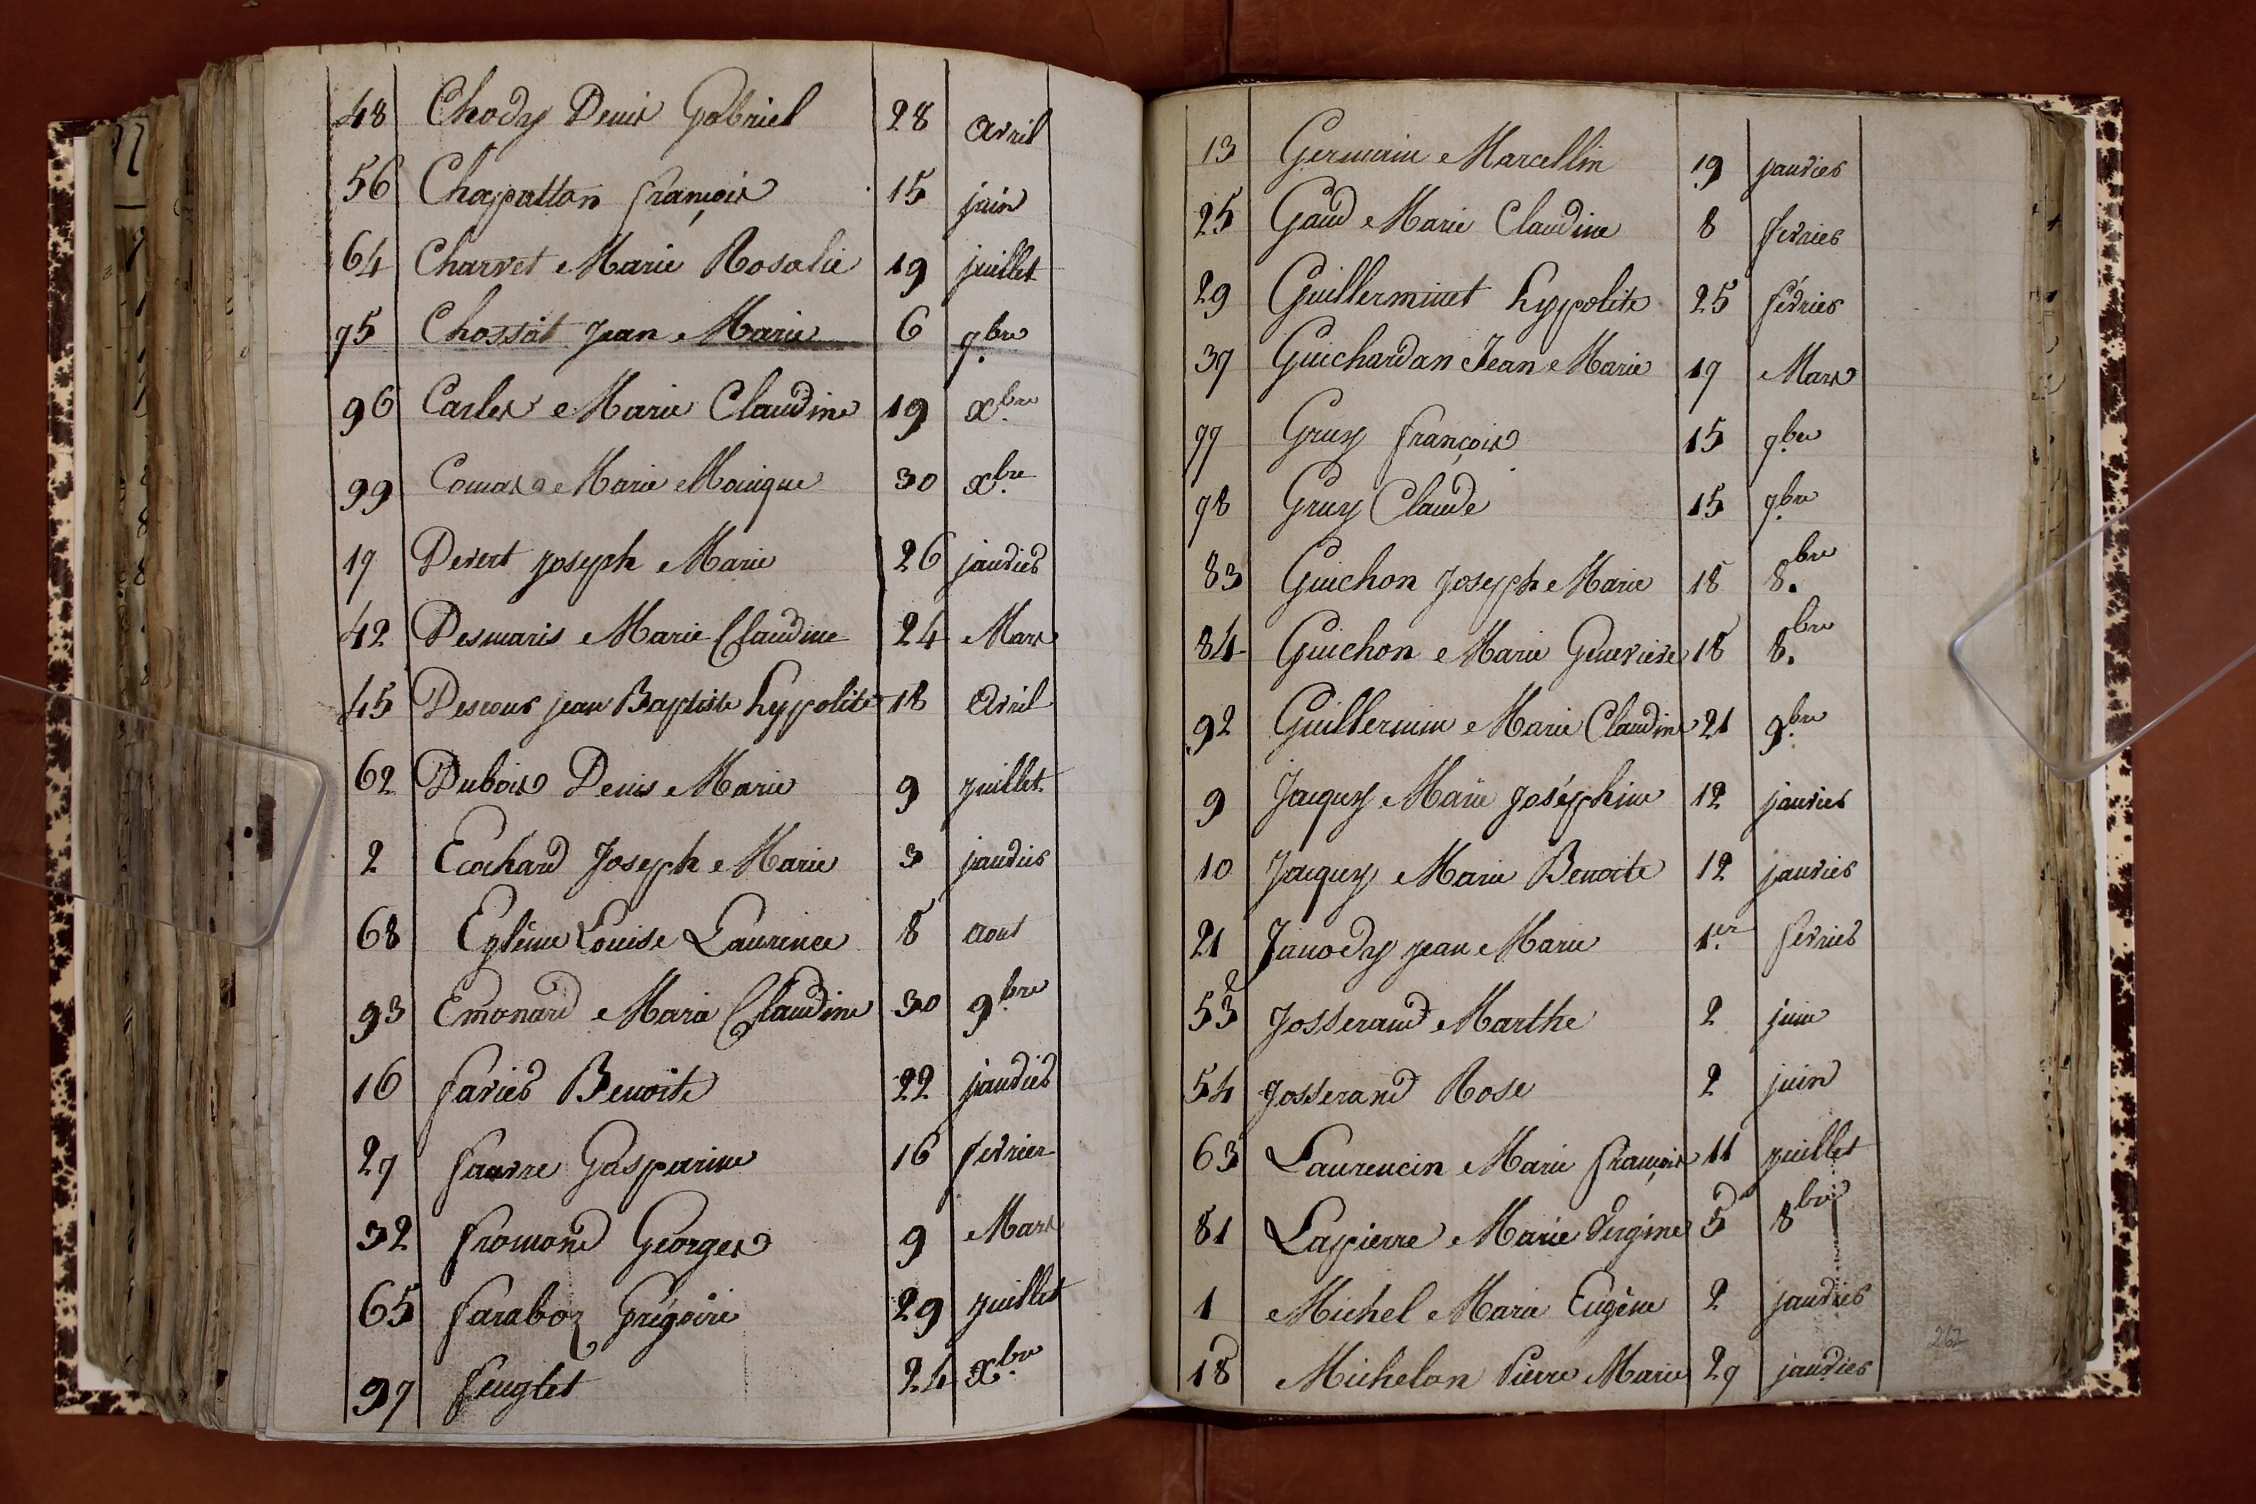 48 Chody Denis Gabriel 28 avril
56 Chapattan françois 15 juin
64 Charvet Marie Rosalie 19 juillet
75 Chossat Jean Marie 6 7.bre
96 Carles Marie Claudine 19 xbre
99 Comas Marie Monique 30 xbre
17 Devert joseph Marie 26 janvier
42 Desmaris Marie Claudine 24 Mars
45 Descour jean Baptiste hyppolite 18 avril
62 Dubois Denis Marie 9 juillet
2 Ecochard Joseph Marie 3 janvier
68 Louise Laurence 8 aout
93 Emonard Maria Claudine 30 9bre
16 favier Benoite 22 janvier
27 favre Gasparine 16 fevrier
32 fromond Georges 9 Mars
65 faraboz Grégoire 29 juillet
97 24 xbre
13 Germain Marcellin 19 janvier
25 Gaud Marie Claudine 8 fevrier
29 Guillerminet hyppolite 25 février
37 Guichardan Jean Marie 17 Mars
77 Gruy françois 15 7bre
78 Gruy Claude 15 7bre
83 Guichon Joseph Marie 18 8.bre
84 Guichon Marie Genevieve 18 8.bre
92 Guillermin Marie Claudine 21 9bre
9 Jacquy Marie joséphine 12 janvier
10 Jacquy Marie Benoite 12 janvier
21 Janody jean Marie 1.er fevrier
53 Josserand Marthe 2 juin
54 Josserand Rose 2 juin
63 Laurencin Marie françois 11 juillet
81 Lapierre Marie Virginie 5 8bre
1 Michel Marie Eugène 2 janvier
18 Michelon Pierre Marie 27 janvier
262